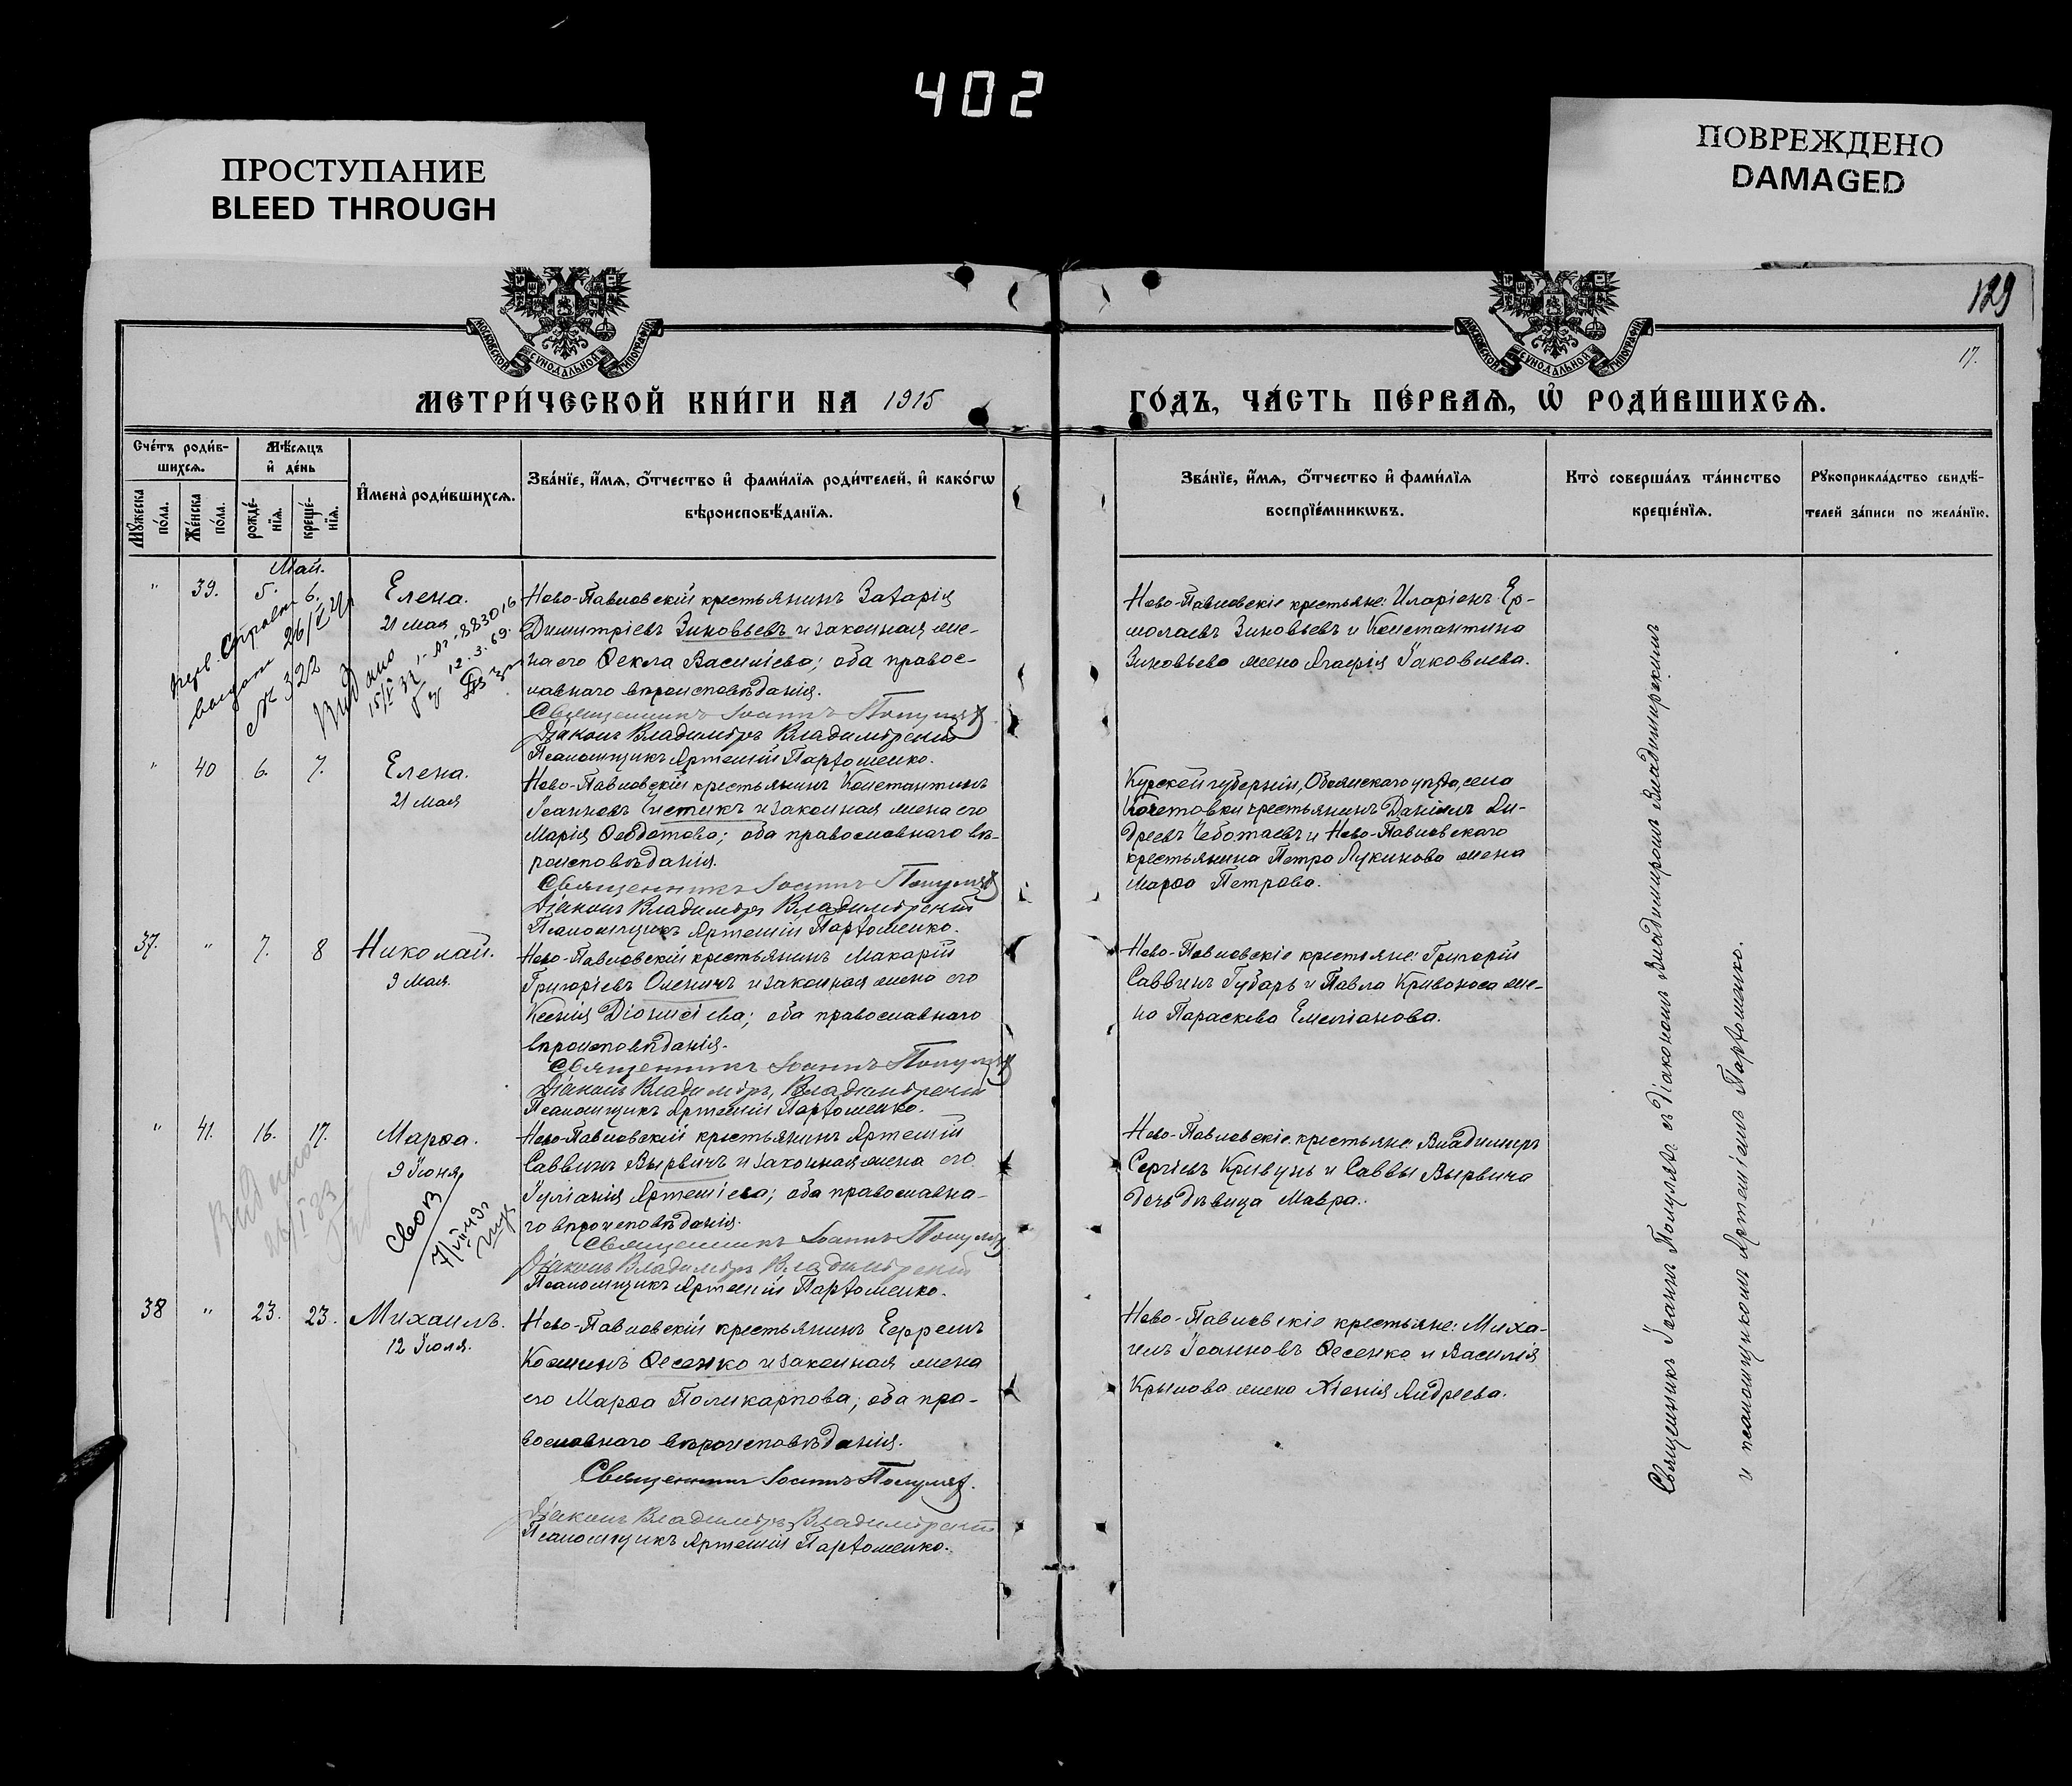 402
ПРОСТУПАНИЕ
BLEED THROUGH
ПОВРЕЖДЕНО
DAMAGED
129
17.
МОСКОВСКОЙ СѴНОДАЛЬНОЙ ТИПОГРАФІИ
МОСКОВСКОЙ СѴНОДАЛЬНОЙ ТИПОГРАФІИ
МЕТРИ́ЧЕСКОЙ КНИ́ГИ НА 1915
ГО́ДЪ, ЧА́СТЬ ПЕ́РВАѦ, Ѡ҆ РОДИ́ВШИХСѦ.
Сче́тъ роди́в-
шихсѧ.
Мѣ́сѧцъ
и҆ де́нь
Мꙋ́жеска
по́ла.
Же́нска
по́ла.
рожде́-
нїѧ.
креще́-
нїѧ.
И҆мена̀ роди́вшихсѧ.
Зва́нїе, и҆́мѧ, ѻ҆́тчество и҆ фами́лїѧ роди́телей, и҆ како́гѡ
вѣроисповѣ́данїѧ.
Зва́нїе, и҆́мѧ, ѻ҆́тчество и҆ фами́лїѧ
воспрїе́мникѡвъ.
Кто̀ соверша́лъ та́инство
креще́нїѧ.
Рꙋкоприкла́дство свидѣ́-
телей за́писи по жела́нїю.
Май.
" 39. 5. 6. Елена.
21 мая
Ново-Павловскій крестьянинъ Захарія
Димитріевъ Зиновьевъ и законная же-
на его Ѳекла Васильева; оба правос-
лавнаго вѣроисповѣданія.
Священникъ Іоаннъ Популяхъ
Діаконъ Владиміръ Владимірскій
Псаломщикъ Артемій Пархоменко.
Ново-Павловскіе крестьяне: Иларіонъ Ер-
молаевъ Зиновьевъ и Константина
Зиновьева жена Агафія Іаковлева.
выдано 26/V
№ 322
Видано
12.3.69.
" 40 6. 7. Елена.
21 Мая
Ново-Павловскій крестьянинъ Константинъ
Іоанновъ Чистикъ и законная жена его
Марія Ѳеодотова; оба православнаго вѣ-
роисповѣданія.
Священникъ Іоаннъ Популяхъ
Діаконъ Владиміръ Владимірскій
Псаломщикъ Артемій Пархоменко.
Курской губерніи, Обоянскаго уѣзда, села
Кочетовки крестьянинъ Даніилъ Ан-
дреевъ Чеботаевъ и Ново-Павловскаго
крестьянина Петра Лукинова жена
Марѳа Петрова.
37. " 7. 8 Николай.
9 Мая.
Ново-Павловскій крестьянинъ Макарій
Григоріевъ Оленичъ и законная жена его
Ксенія Діонисіева; оба православнаго
вѣроисповѣданія.
Священникъ Іоаннъ Популяхъ
Діаконъ Владиміръ Владимірскій
Псаломщикъ Артемій Пархоменко.
Ново-Павловскіе крестьяне: Григорій
Саввинъ Губарь и Павла Кривоноса же-
на Параскева Емеліанова.
" 41. 16. 17. Марѳа.
9 Іюня
Ново-Павловскій крестьянинъ Артемій
Саввинъ Вырвичъ и законная жена его
Іуліанія Артеміева; оба православна-
го вѣроисповѣданія.
Священникъ Іоаннъ Популяхъ
Діаконъ Владиміръ Владимірскій
Псаломщикъ Артемій Пархоменко.
Ново-Павловскіе крестьяне: Владимиръ
Сергіевъ Кривунь и Саввы Вырвича
дочь дѣвица Мавра.
Видано
38 " 23. 23. Михаилъ.
12 Іюля.
Ново-Павловскій крестьянинъ Ефремъ
Косминъ Ѳесенко и законная жена
его Марѳа Поликарпова; оба пра-
вославнаго вѣроисповѣданія.
Священникъ Іоаннъ Популяхъ.
Діаконъ Владиміръ Владимірскій
Псаломщикъ Артемій Пархоменко.
Ново-Павловскіе крестьяне: Миха-
илъ Іоанновъ Ѳесенко и Василія
Крылова жена Ксенія Андреева.
Священникъ Іоаннъ Популяхъ съ Діакономъ Владимиромъ Владимирскимъ
и псаломщикомъ Артеміемъ Пархоменко.